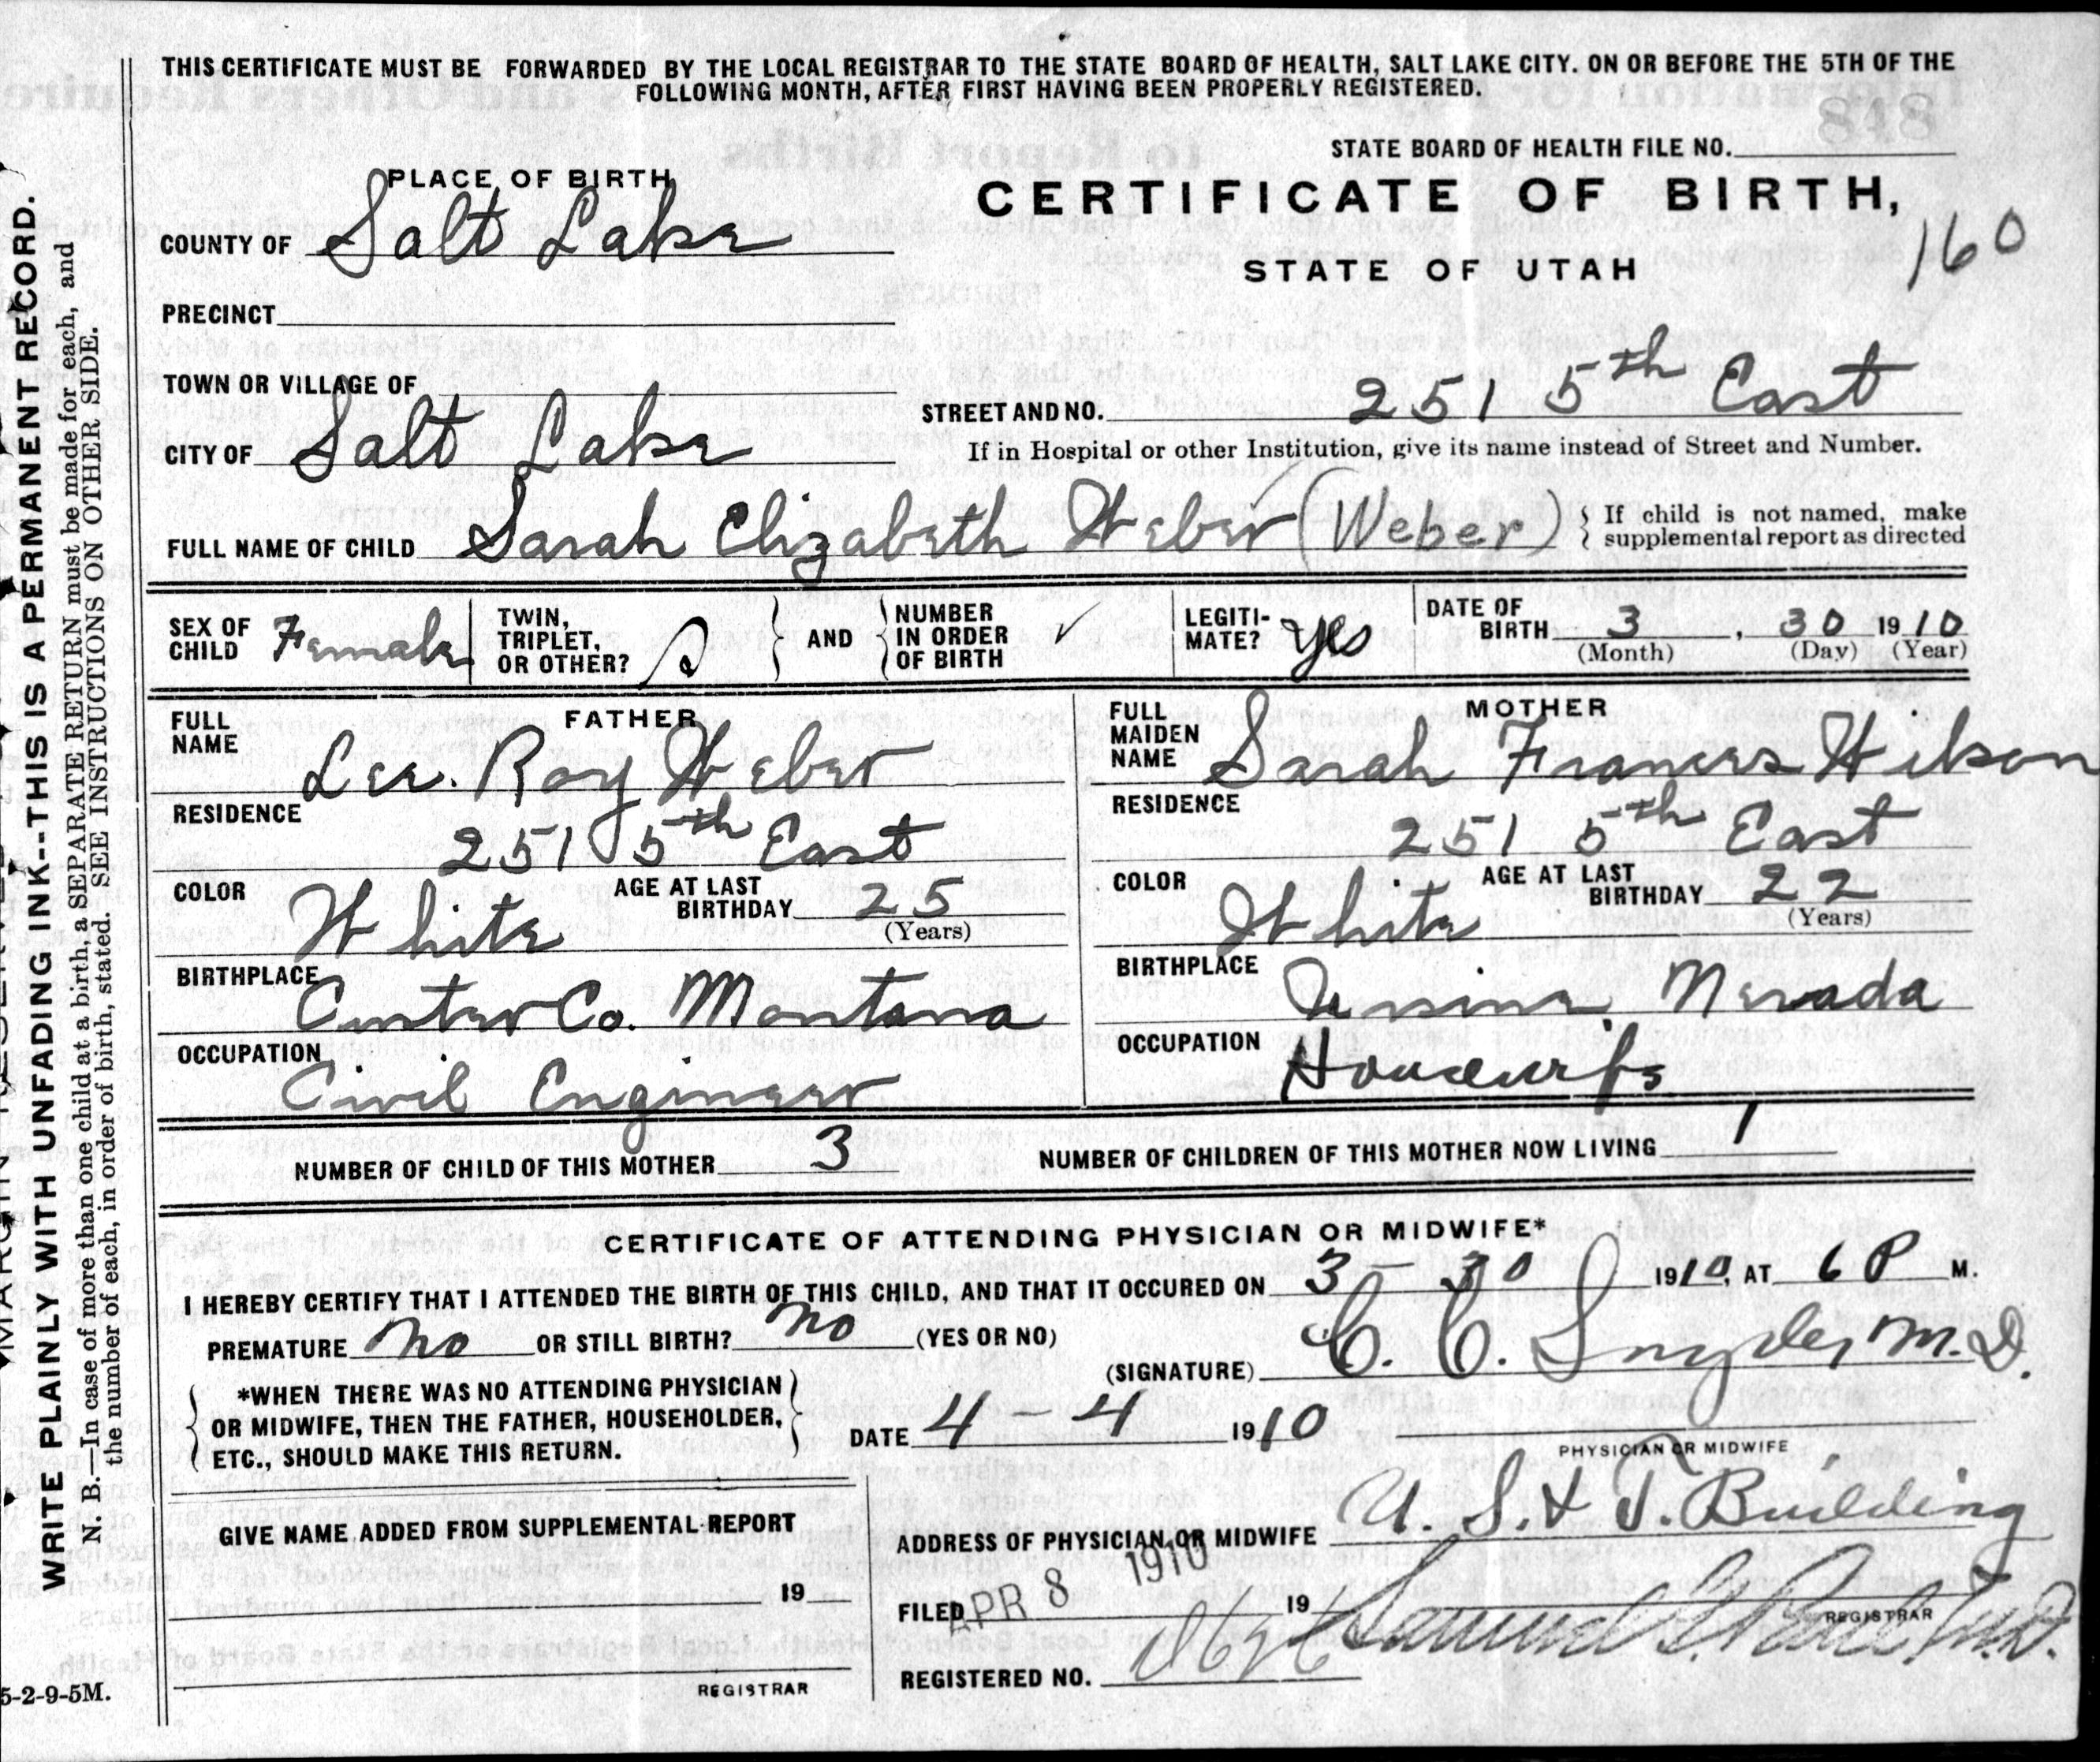 THIS CERTIFICATE MUST BE FORWARDED BY THE LOCAL REGISTRAR TO THE STATE BOARD OF HEALTH, SALT LAKE CITY. ON OR BEFORE THE 5TH OF THE
FOLLOWING MONTH, AFTER FIRST HAVING BEEN PROPERLY REGISTERED.
848
STATE BOARD OF HEALTH FILE NO.
PLACE OF BIRTH
CERTIFICATE OF BIRTH,
160
COUNTY OF Salt Lake
STATE OF UTAH
PRECINCT
TOWN OR VILLAGE OF
STREET AND NO. 251 5th East
CITY OF Salt Lake
If in Hospital or other Institution, give its name instead of Street and Number.
FULL NAME OF CHILD Sarah Elizabeth Weber (Weber)
If child is not named, make
supplemental report as directed
SEX OF CHILD Female
TWIN, TRIPLET, OR OTHER?
AND
NUMBER IN ORDER OF BIRTH ✓
LEGITI-MATE? yes
DATE OF BIRTH 3, 30 1910
(Month) (Day) (Year)
FATHER
FULL NAME Lee. Roy Weber
RESIDENCE 251 5th East
COLOR White
AGE AT LAST BIRTHDAY 25
(Years)
BIRTHPLACE Custer Co. Montana
OCCUPATION Civil Engineer
MOTHER
FULL MAIDEN NAME Sarah Frances Wilson
RESIDENCE 251 5th East
COLOR White
AGE AT LAST BIRTHDAY 22
(Years)
BIRTHPLACE Nevada
OCCUPATION Housewife
NUMBER OF CHILD OF THIS MOTHER 3
NUMBER OF CHILDREN OF THIS MOTHER NOW LIVING 1
CERTIFICATE OF ATTENDING PHYSICIAN OR MIDWIFE*
I HEREBY CERTIFY THAT I ATTENDED THE BIRTH OF THIS CHILD, AND THAT IT OCCURED ON 3 - 30 1910, AT 6 P M.
PREMATURE No OR STILL BIRTH? No (YES OR NO)
(SIGNATURE) C. C. Snyder M.D.
PHYSICIAN OR MIDWIFE
*WHEN THERE WAS NO ATTENDING PHYSICIAN
OR MIDWIFE, THEN THE FATHER, HOUSEHOLDER,
ETC., SHOULD MAKE THIS RETURN.
DATE 4 - 4 1910
GIVE NAME ADDED FROM SUPPLEMENTAL REPORT
19
REGISTRAR
ADDRESS OF PHYSICIAN OR MIDWIFE U. S. & T. Building
FILED APR 8 1910 19
REGISTRAR
REGISTERED NO.
WRITE PLAINLY WITH UNFADING INK--THIS IS A PERMANENT RECORD.
N. B.—In case of more than one child at a birth, a SEPARATE RETURN must be made for each, and
the number of each, in order of birth, stated. SEE INSTRUCTIONS ON OTHER SIDE.
5-2-9-5M.